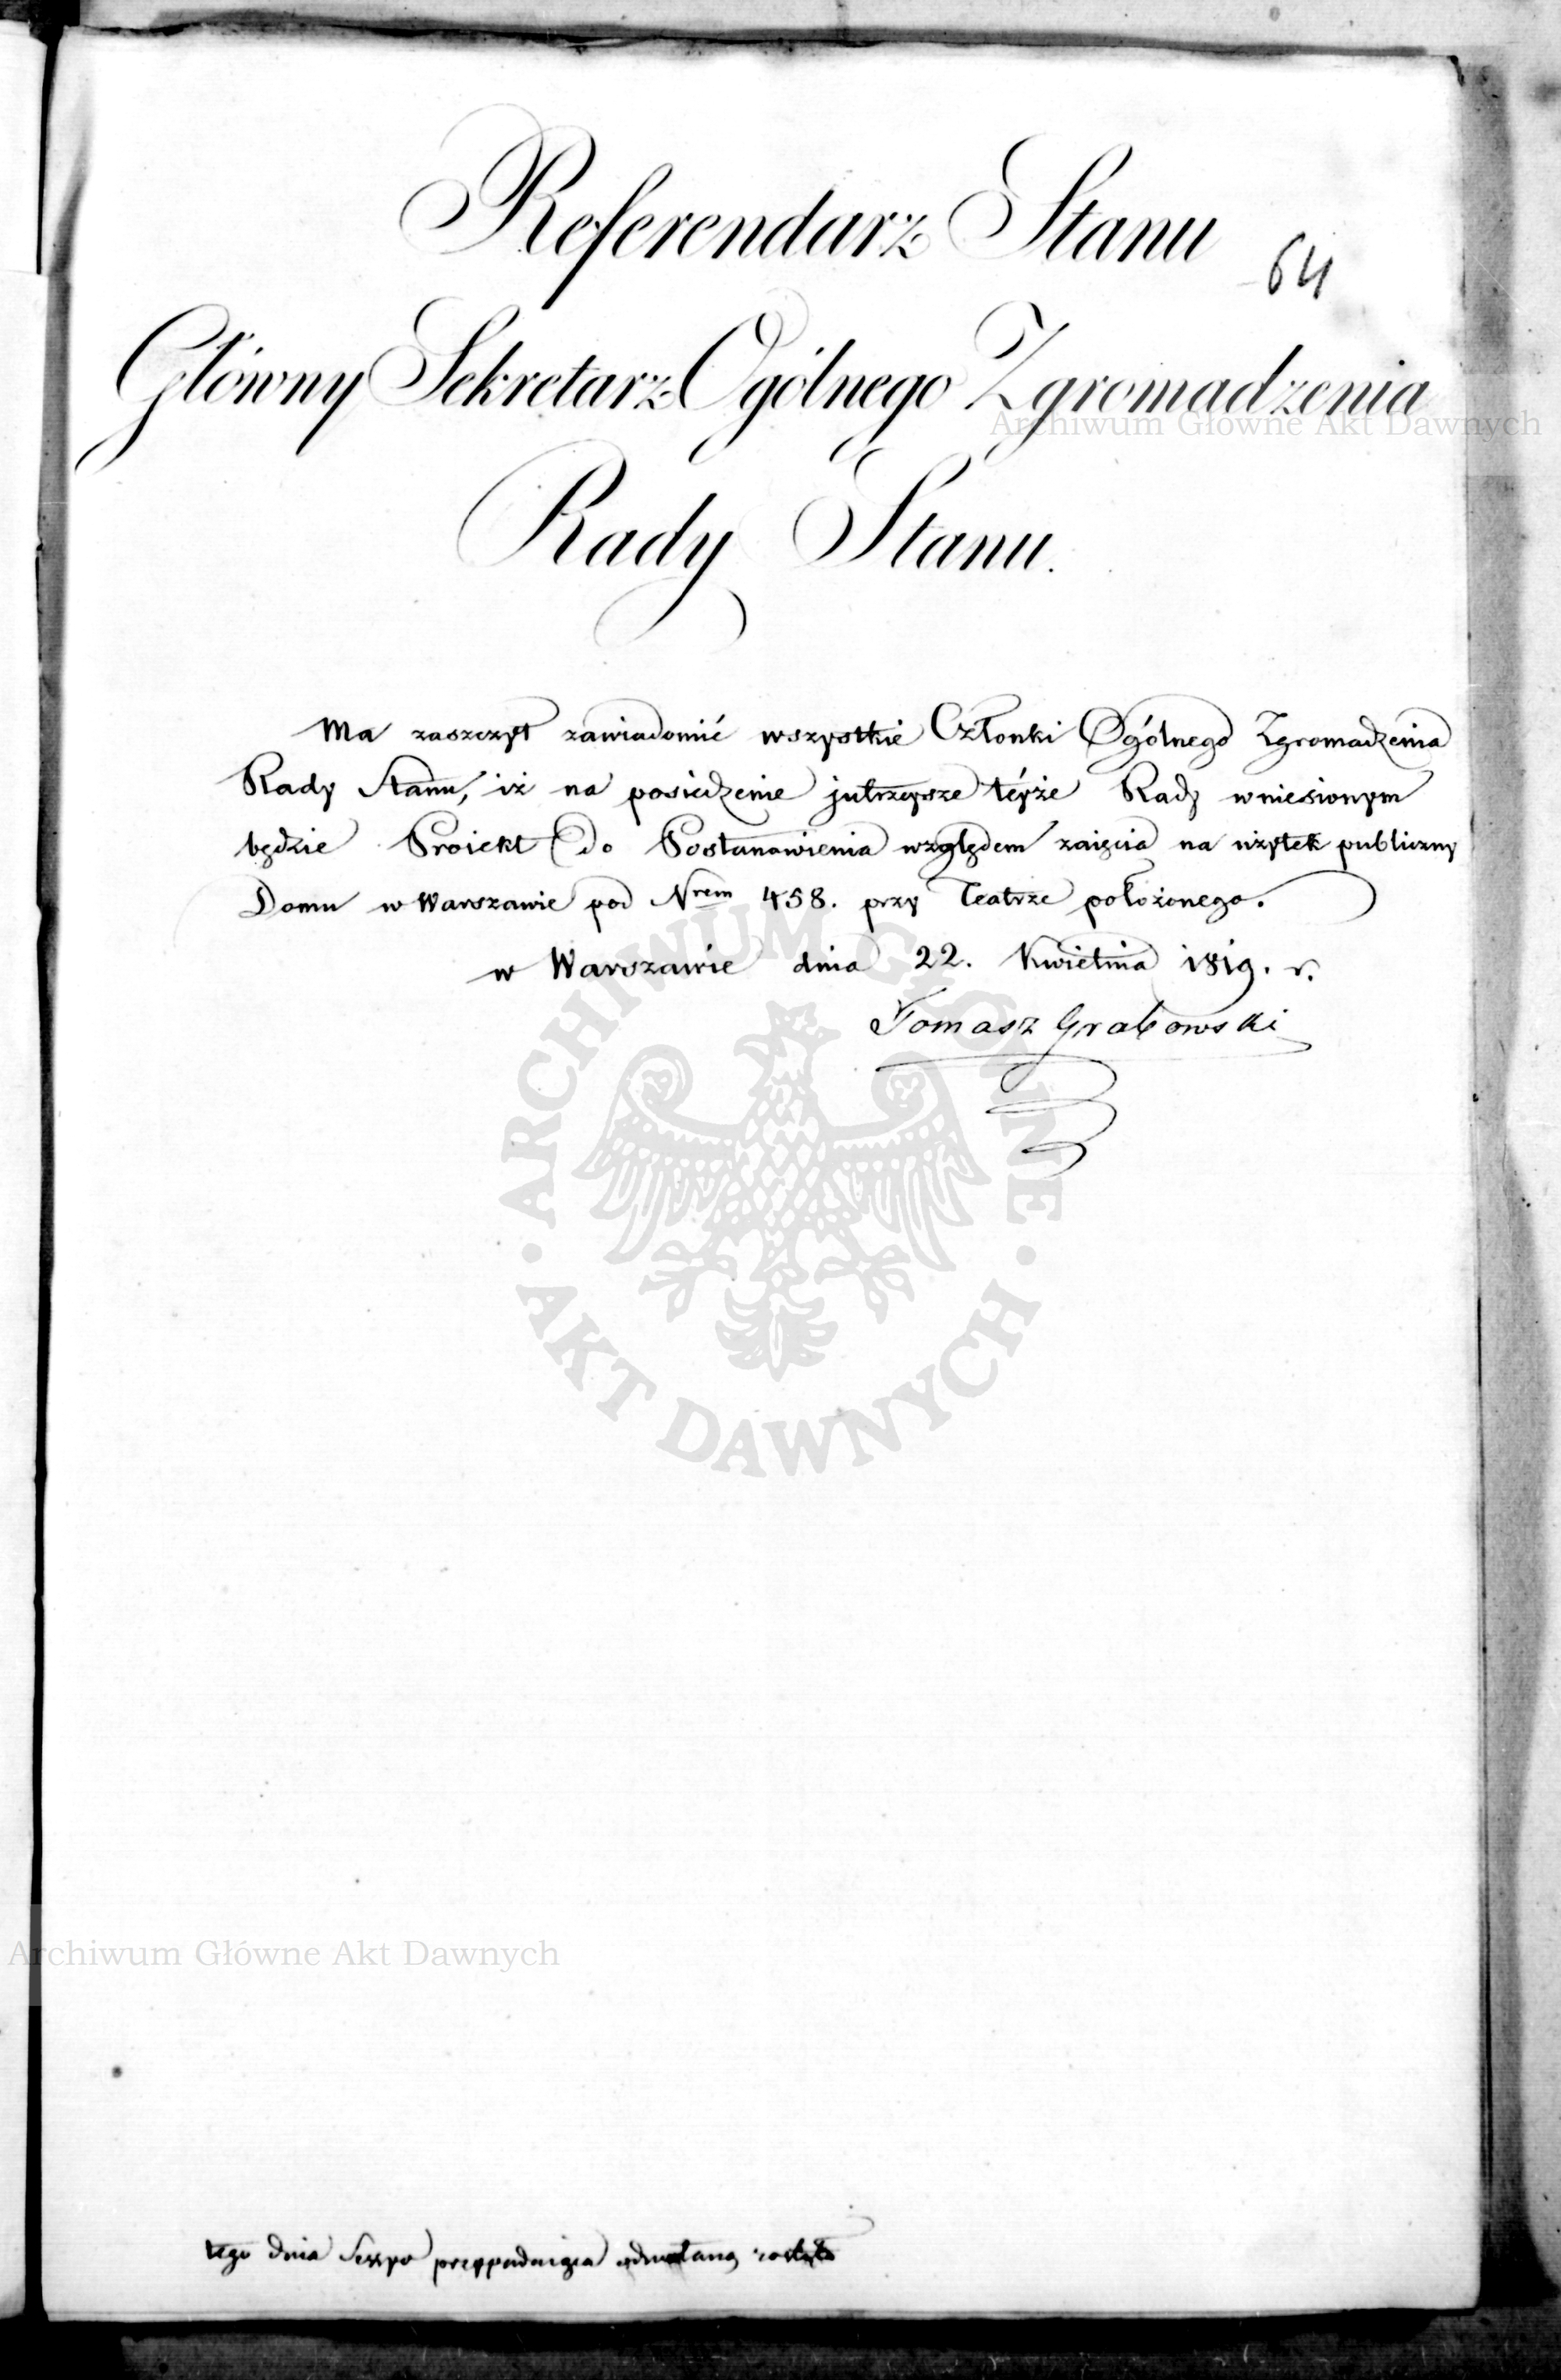 Referendarz Stanu
64
Główny Sekretarz Ogólnego Zgromadzenia
Archiwum Główne Akt Dawnych
Rady Stanu.
Ma zaszczyt zawiadomić wszystkie Członki Ogólnego Zgromadzenia
Rady Stanu, iż na posiedzenie jutrzeysze téyże Rady wniesionym
będzie Proiekt do Postanowienia względem zaięcia na użytek publiczny
Domu w Warszawie pod Nrem 458. przy Teatrze położonego.
w Warszawie dnia 22. Kwietnia 1819. r.
Tomasz Grabowski
ARCHIWUM GŁÓWNE
AKT DAWNYCH
Archiwum Główne Akt Dawnych
tego dnia Sessya przypadaiąca odwołaną została